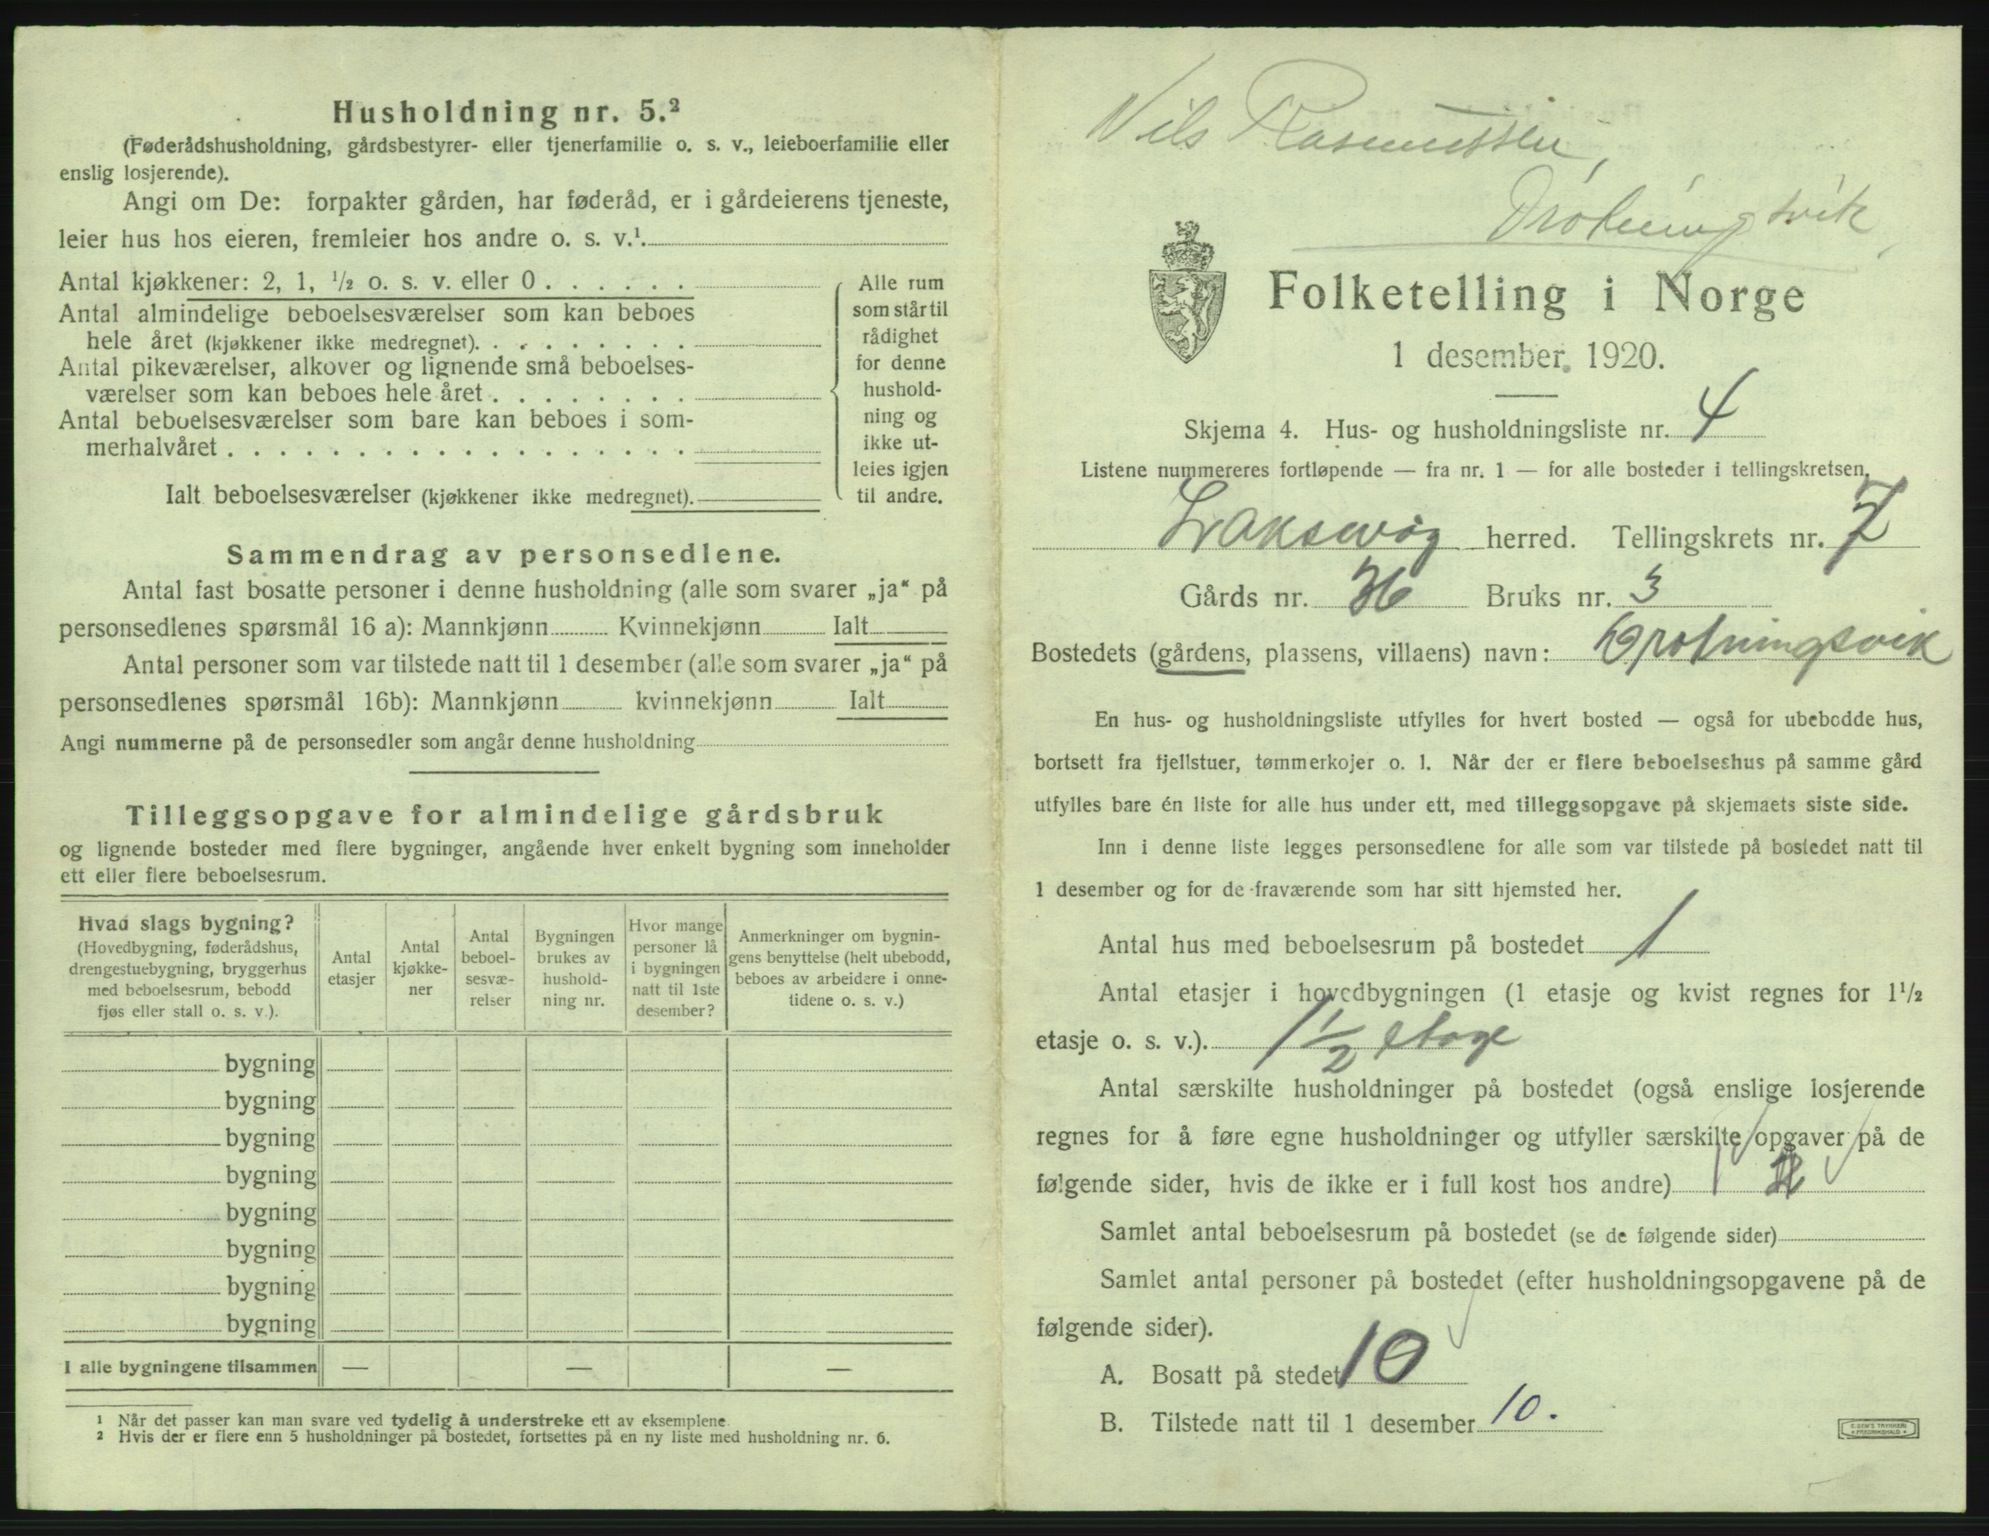 Husholdning nr. 5.²
(Føderådshusholdning, gårdsbestyrer- eller tjenerfamilie o. s. v., leieboerfamilie eller
enslig losjerende).
Angi om De: forpakter gården, har føderåd, er i gårdeierens tjeneste,
leier hus hos eieren, fremleier hos andre o. s. v.¹.
Antal kjøkkener: 2, 1, ½ o. s. v. eller 0 . . . . . .
Antal almindelige beboelsesværelser som kan beboes
hele året (kjøkkener ikke medregnet). . . . . . . . .
Antal pikeværelser, alkover og lignende små beboelses-
værelser som kan beboes hele året . . . . . . . .
Antal beboelsesværelser som bare kan beboes i som-
merhalvåret . . . . . . . . . . . . . . . . . .
Ialt beboelsesværelser (kjøkkener ikke medregnet).
Alle rum
som står til
rådighet
for denne
hushold-
ning og
ikke ut-
leies igjen
til andre.
Sammendrag av personsedlene.
Antal fast bosatte personer i denne husholdning (alle som svarer „ja“ på
personsedlenes spørsmål 16 a): Mannkjønn Kvinnekjønn Ialt
Antal personer som var tilstede natt til 1 desember (alle som svarer „ja“ på
personsedlenes spørsmål 16b): Mannkjønn kvinnekjønn Ialt
Angi nummerne på de personsedler som angår denne husholdning
Tilleggsopgave for almindelige gårdsbruk
og lignende bosteder med flere bygninger, angående hver enkelt bygning som inneholder
ett eller flere beboelsesrum.
Hvad slags bygning?
(Hovedbygning, føderådshus,
drengestuebygning, bryggerhus
med beboelsesrum, bebodd
fjøs eller stall o. s. v.).
Antal
etasjer
Antal
kjøkke-
ner
Antal
beboel-
sesvæ-
relser
Bygningen
brukes av
hushold-
ning nr.
Hvor mange
personer lå
i bygningen
natt til 1ste
desember?
Anmerkninger om bygnin-
gens benyttelse (helt ubebodd,
beboes av arbeidere i onne-
tidene o. s. v.)
bygning
bygning
bygning
bygning
bygning
bygning
bygning
bygning
I alle bygningene tilsammen — — —
¹ Når det passer kan man svare ved tydelig å understreke ett av eksemplene.
² Hvis der er flere enn 5 husholdninger på bostedet, fortsettes på en ny liste med husholdning nr. 6.
Nils Rasmussen,
Drotningsvik
Folketelling i Norge
1 desember 1920.
Skjema 4. Hus- og husholdningsliste nr. 4
Listene nummereres fortløpende — fra nr. 1 — for alle bosteder i tellingskretsen.
Laksevåg herred. Tellingskrets nr. 7
Gårds nr. 36 Bruks nr. 3
Bostedets (gårdens, plassens, villaens) navn: Drotningsvik
En hus- og husholdningsliste utfylles for hvert bosted — også for ubebodde hus,
bortsett fra fjellstuer, tømmerkojer o. l. Når der er flere beboelseshus på samme gård
utfylles bare én liste for alle hus under ett, med tilleggsopgave på skjemaets siste side.
Inn i denne liste legges personsedlene for alle som var tilstede på bostedet natt til
1 desember og for de fraværende som har sitt hjemsted her.
Antal hus med beboelsesrum på bostedet 1
Antal etasjer i hovedbygningen (1 etasje og kvist regnes for 1½
etasje o. s. v.). 1½ etage
Antal særskilte husholdninger på bostedet (også enslige losjerende
regnes for å føre egne husholdninger og utfyller særskilte opgaver på de
følgende sider, hvis de ikke er i full kost hos andre)
Samlet antal beboelsesrum på bostedet (se de følgende sider)
Samlet antal personer på bostedet (efter husholdningsopgavene på de
følgende sider).
A. Bosatt på stedet 10
B. Tilstede natt til 1 desember 10.